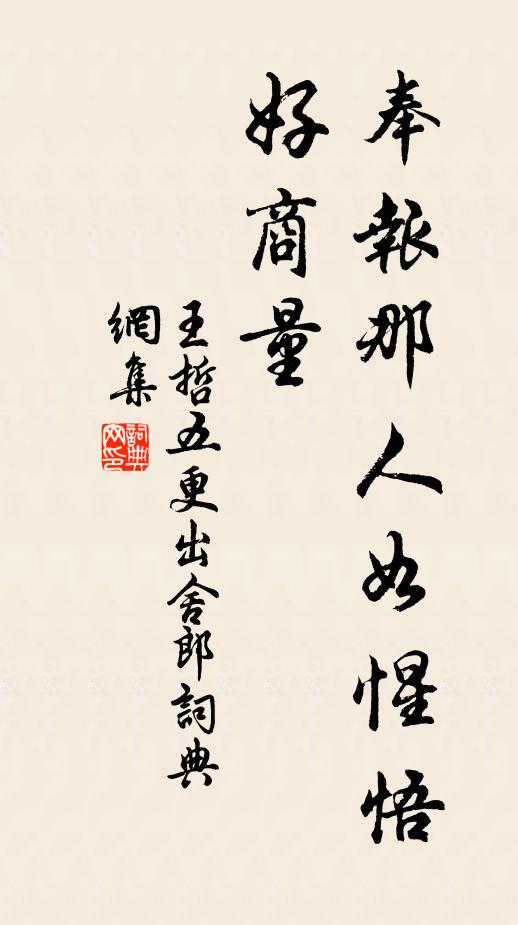 奉報那人如惺悟
好商量
王哲五更出舍郎詞典
網集
詞典
网印